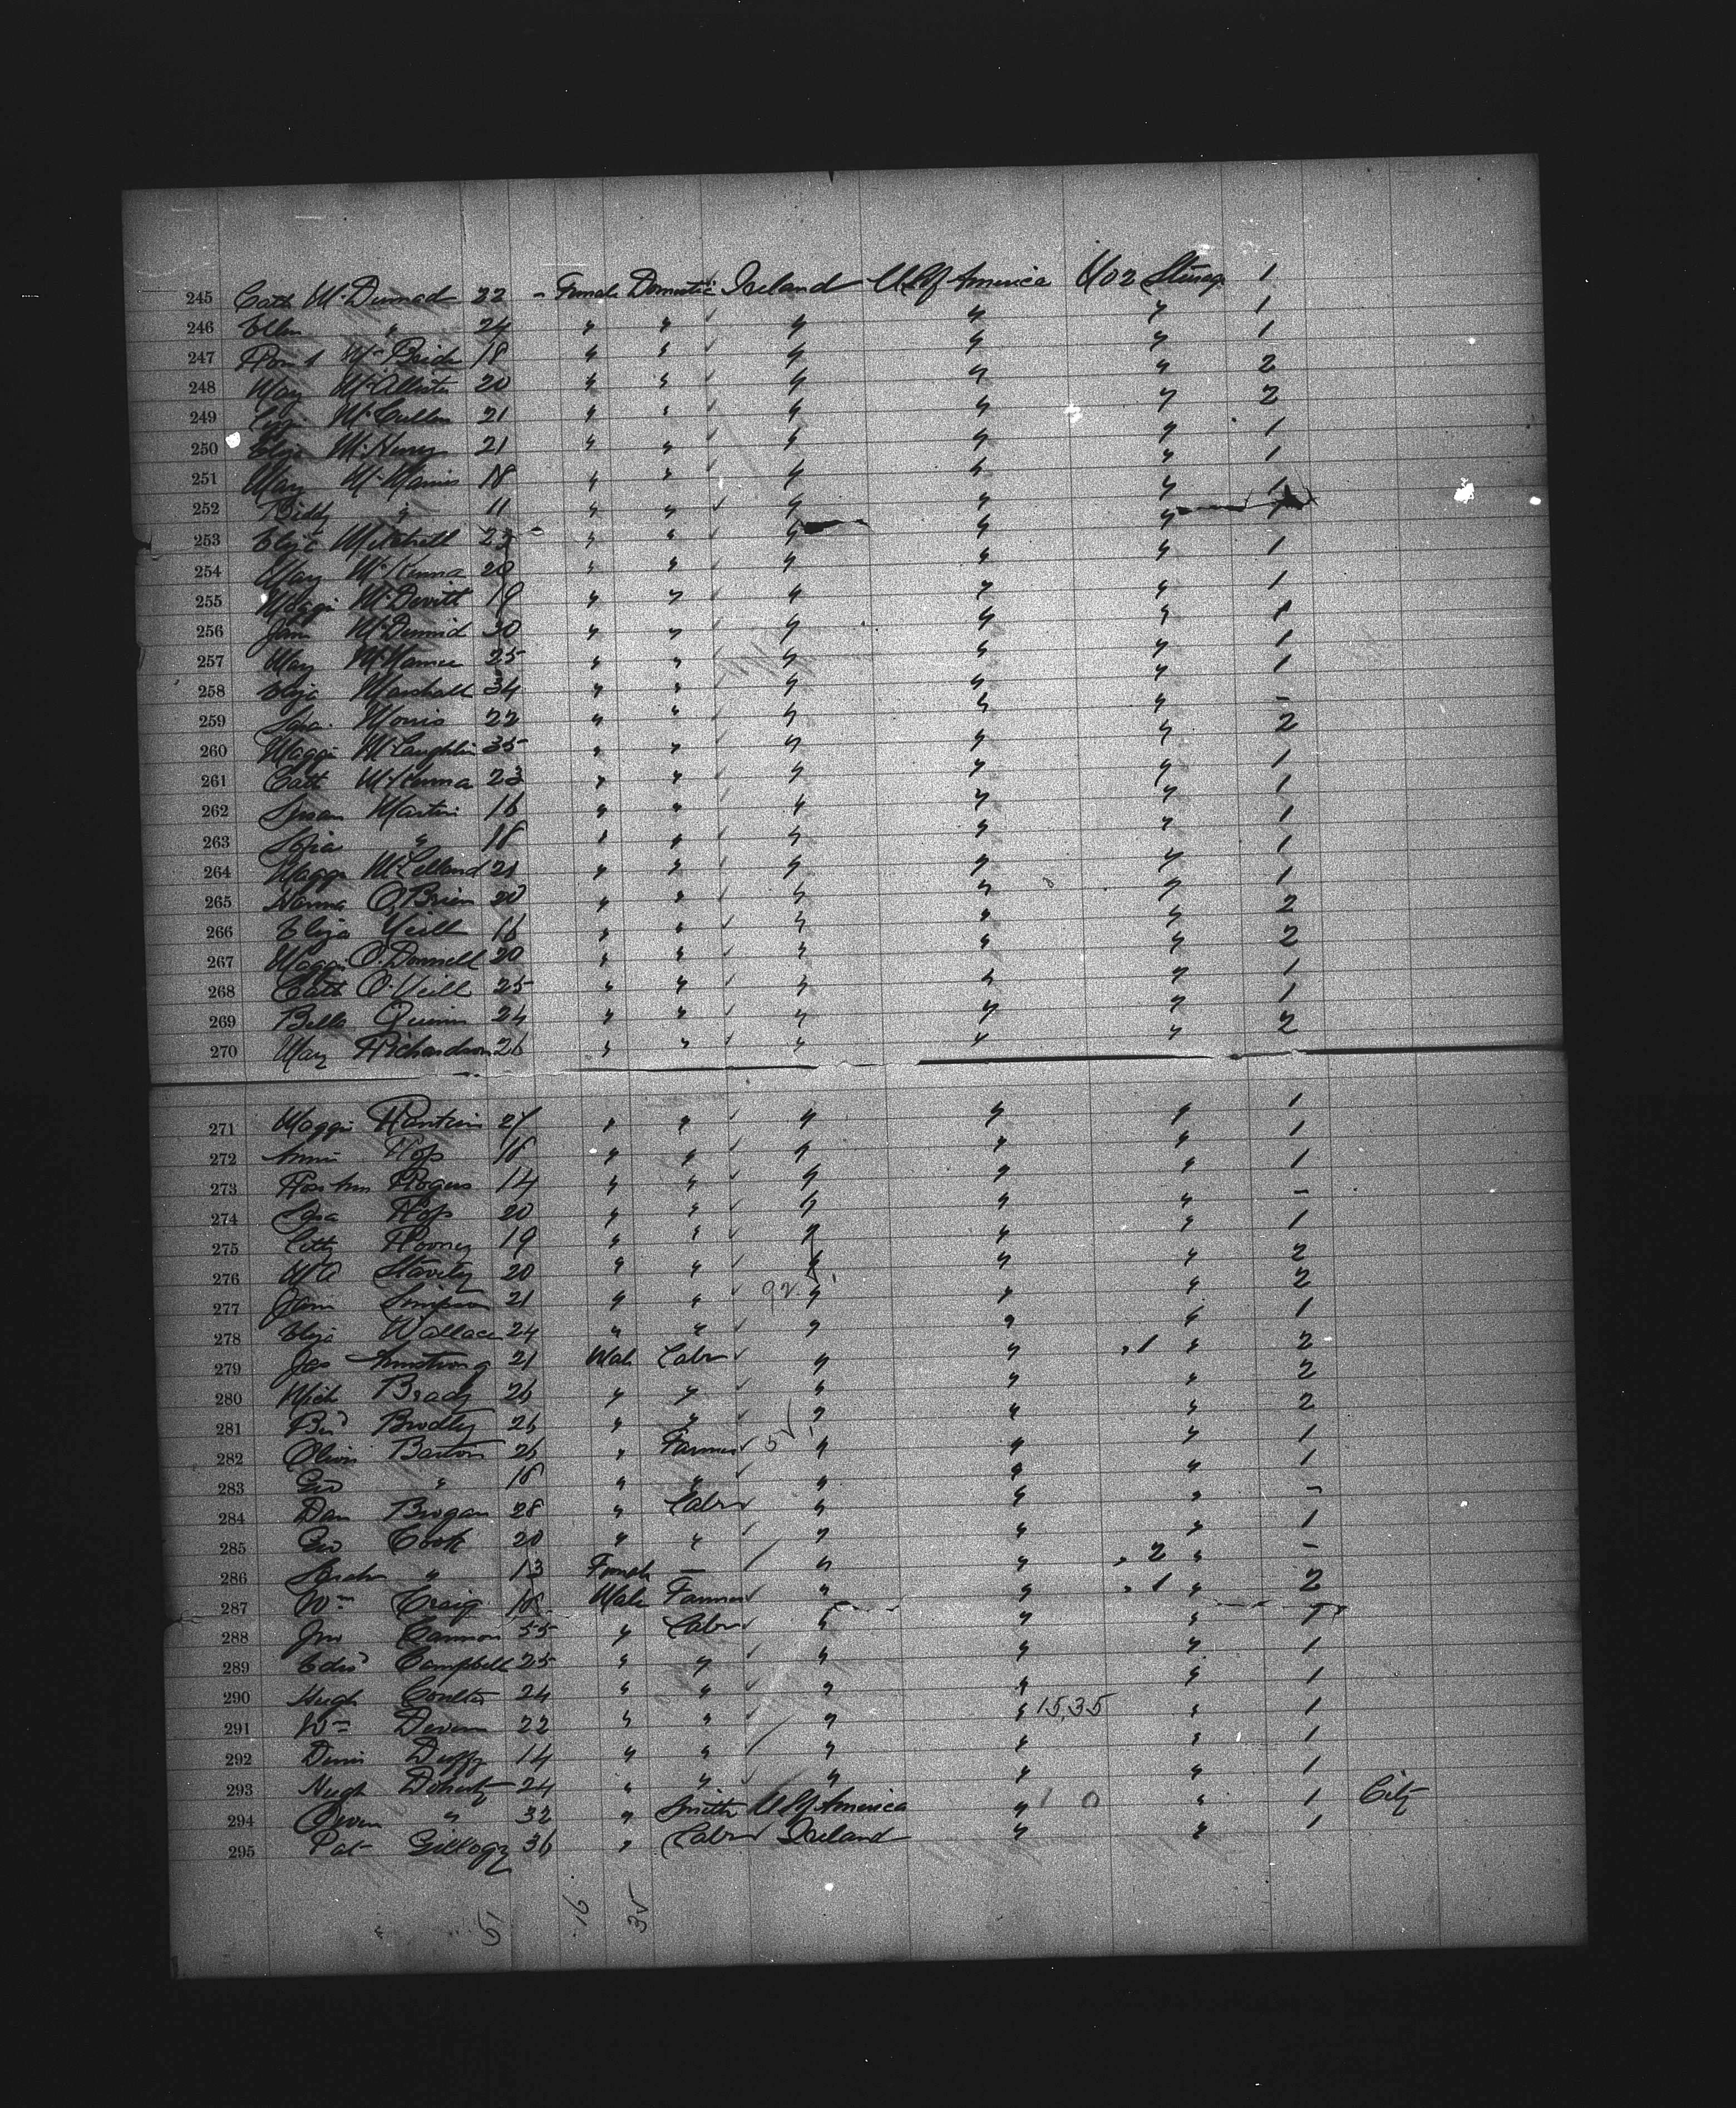 245 Cath McDermad 22 - Female Domestic Ireland US of America No 2 Steerage 1
246 Ellen " 24 " " " " " 1
247 McBride 18 " " " " " 1
248 Mary McAllister 20 " " " " " 2
249 McCullen 21 " " " " " 2
250 Eliza McHenry 21 " " " " " 1
251 Mary McManus 18 " " " " " 1
252 Biddy " 11 " " " " " 1
253 Eliza Mitchell " " " " "
254 Mary McKenna 20 " " " " " 1
255 Maggie McDevitt " " " " " 1
256 Jane McDermid 30 " " " " " 1
257 Mary McNamee 25 " " " " " 1
258 Eliza Marshall 34 " " " " " 1
259 Morris 22 " " " " " -
260 Maggie McLaughlin 35 " " " " " 2
261 Cath McKenna 23 " " " " " 1
262 Susan Martin 16 " " " " " 1
263 " 18 " " " " " 1
264 Maggie McLelland 21 " " " " " 1
265 Hanna O'Brien 20 " " " " " 1
266 Eliza Neill 16 " " " " " 2
267 Maggie O'Donnell 20 " " " " " 2
268 Cath O'Neill 25 " " " " " 1
269 Bella Quinn 24 " " " " " 1
270 Mary Richardson 26 " " " " " 2
271 Maggie Rankin 21 " " " " " 1
272 Annie Ross 18 " " " " " 1
273 Rose Ann Rogers 14 " " " " " 1
274 Ross 20 " " " " " -
275 Rooney 19 " " " " " 1
276 20 " " " " " 2
277 Jane Simpson 21 " " 92 " " " 2
278 Eliza Wallace 24 " " " " " 1
279 Jas Armstrong 21 Male Labr " " . 1 " 2
280 Mich Brady 26 " " " " " 2
281 Brodley 26 " " " " " 2
282 Barton 26 " Farmer 5 " " " 1
283 Geo " 18 " " " " " 1
284 Dan Brogan 28 " Labr " " " -
285 Geo Cook 20 " " " " " 1
286 Sarah " 13 Female - " " . 2 " -
287 Wm Craig 18 Male Farmer " " . 1 " 2
288 Jno Cannon 55 " Labr " " " 1
289 Edwd Campbell 25 " " " " " 1
290 Hugh Coulter 24 " " " " " 1
291 Wm Deven 22 " " " " 15,35 " 1
292 Denis Duffy 14 " " " " " 1
293 Hugh Doherty 24 " " " " " 1
294 Owen " 32 " Smith US of America " 1 0 " 1 City
295 Pat Gillogy 36 " Labr Ireland " " 1
5 16 35